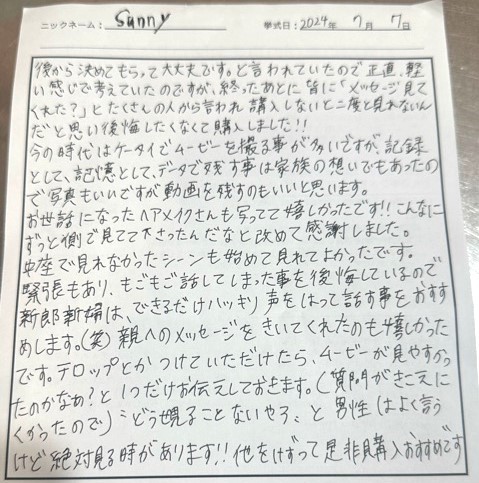 ニックネーム： Sunny 挙式日：2024年 7月 7日
後から決めてもらって大丈夫です。と言われていたので正直、軽
い感じで考えていたのですが、終ったあとに皆に「メッセージ見て
くれた？」とたくさんの人から言われ 購入しないと二度と見れないん
だと思い後悔したくなくて購入しました!!
今の時代はケータイでムービーを撮る事が多いですが、記録
として、記憶として、データで残す事は家族の想いでもあったの
で写真もいいですが動画を残すのもいいと思います。
お世話になったヘアメイクさんも写ってて嬉しかったです!! こんなに
ずっと側で見てて下さったんだなと改めて感謝しました。
中座で見れなかったシーンも始めて見れてよかったです。
緊張もあり、もごもご話してしまった事を後悔しているので
新郎新婦は、できるだけハッキリ声をはって話す事をおすす
めします。(笑) 親へのメッセージをきいてくれたのも嬉しかった
です。テロップとかつけていただけたら、ムービーが見やすかっ
たのかなぁ？と1つだけお伝えしておきます。(質問がきこえに
くかったので) どうせ見ることないやろ、と 男性はよく言う
けど絶対見る時があります!! 他をけずって是非購入おすすめです